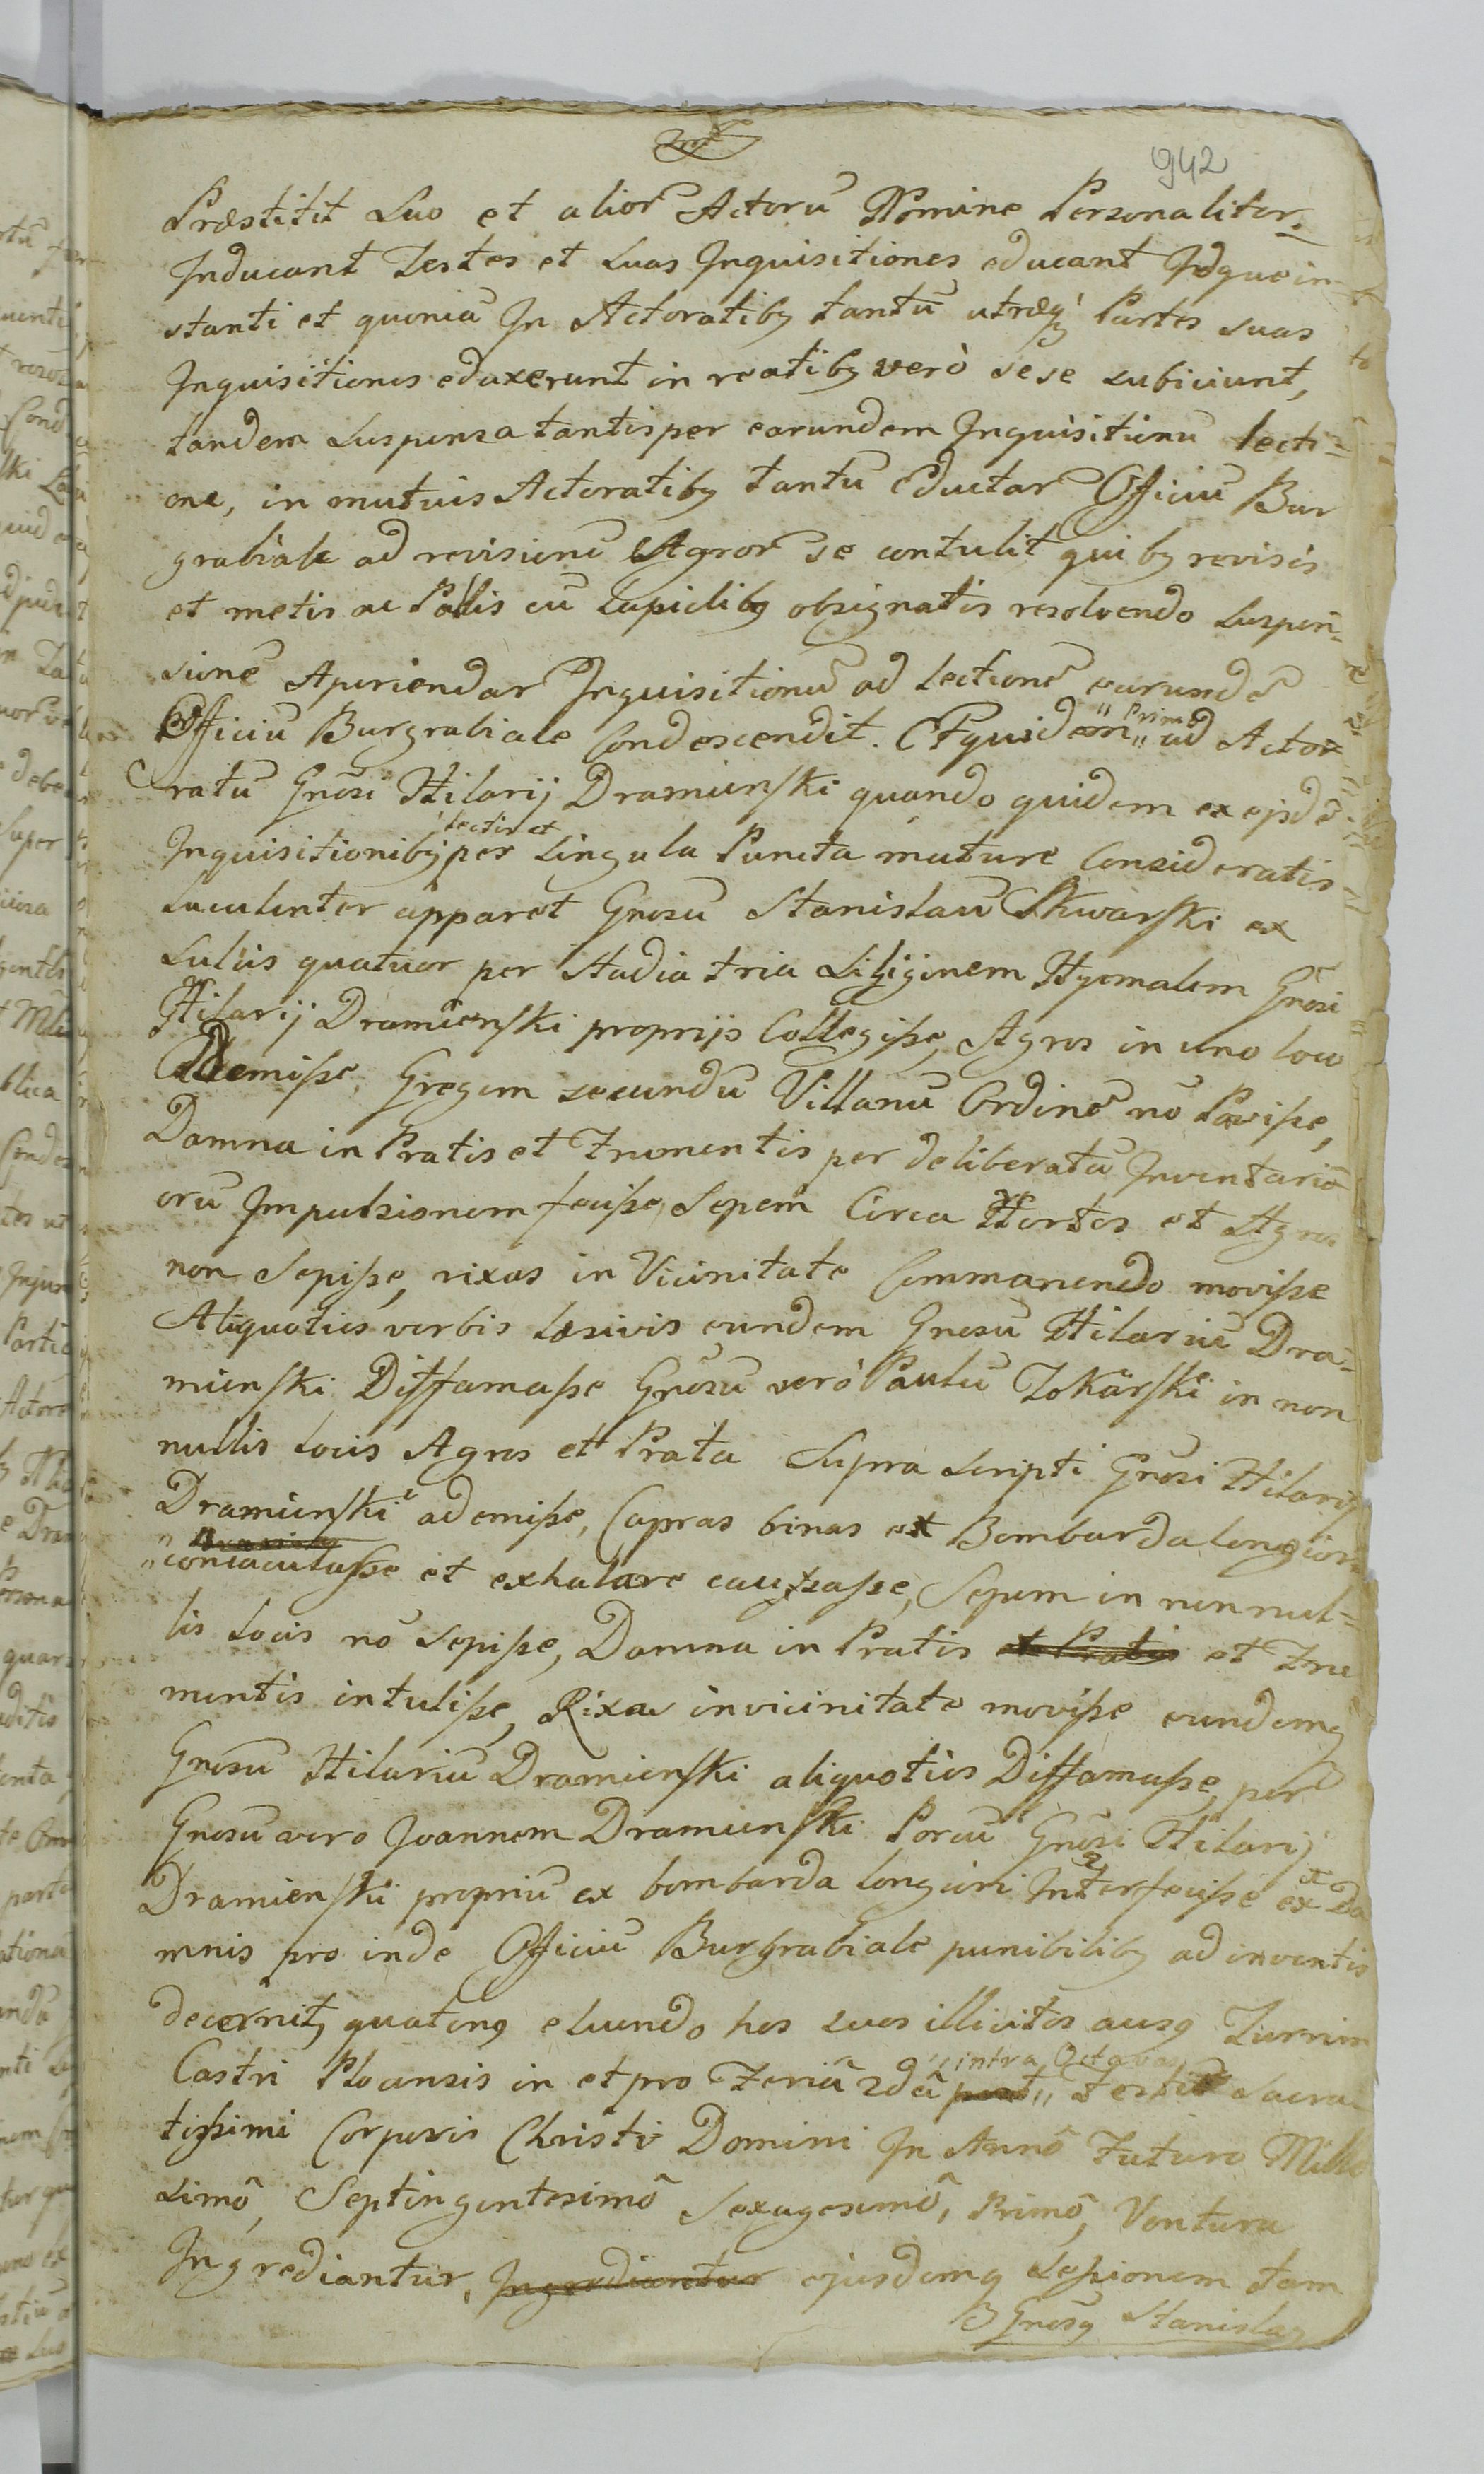 942
Præstitit Suo et alior̃ Actorũ Nomine Personaliter.
Inducant Testes et Suas Inquisitiones educant Idque in-
stanti et quoniã In Actoratibꝫ tantũ utræqꝫ Partes suas
Inquisitiones eduxerunt in reatibꝫ verò sese subiciunt,
tandem Suspensa tantisper earundem Inquisitionũ lecti=
one, in mutuis Actoratibꝫ tantũ Eductar̃ Officiũ Bur
grabiale ad revisionẽ Agror̃ se contulit quibꝫ revisis
et metis ac Palis cũ Lapidibꝫ obsignatis resolvendo Suspen-
sionẽ Aperiendar̃ Inquisitionũ ad Lectionẽ earundẽ
Officiũ Burgrabiale Condescendit. Et quidem " Primo " ad Acto
ratũ Gñosi Hilarij Dramienski quando quidem ex ejsdẽ
Inquisitionibꝫ lectis et per Singula Puncta mature Consideratis
Luculenter apparet Gnosũ Stanislaũ Skwarski ex
Sulcis quatuor per Stadia tria Siliginem Hyemalem Gñosi
Hilarij Dramienski proprijs Collegiße, Agros in uno loco
Ademiße, Gregem secundũ Villanũ Ordinẽ nõ Paviße,
Damna in Pratis et Frumentis per deliberatã Inventari
orũ Impulsionem feciße, Sepem Circa Hortos et Agros
non Sepiße, rixas in Vicinitate Commanendo moviße
Aliquoties verbis Læsivis eundem Gnosũ Hilariũ Dra=
mienski Diffamaße Gñosũ verò Paulũ Tokarski in non
nullis locis Agros et Prata Supra Scripti Gñosi Hilarij
Dramienski ademiße, Capras binas ex Bombarda longiori
coniaculaße et exhalare caussaße, Sepem in nonnul=
lis Locis nõ Sepiße, Damna in Pratis et Pratis et Fru
mentis intuliße, Rixas in vicinitate moviße eundemqꝫ
Gnosũ Hilariũ Dramienski aliquoties Diffamaße, per
Gnosũ vero Joannem Dramienski Porcũ Gñosi Hilarij
Dramienski propriũ ex bombarda longiori Interfeciße ex Da
mnis pro inde Officiũ Burgrabiale punibilibꝫ ad inventis
decernit, quatenꝫ eluendo hos suos illicitos ausꝫ Turrim
Castri Plocensis in et pro Feriã 2dã post " intra Octavas " Festi Sacra
tißimi Corporis Christi Domini In Annô Futuro Mille
simô, Septingentesimô Sexagesimô, Primô, Ventura
Ingrediantur, Ingrediantur ejusdemqꝫ Seßionem tam
Gnosꝫ Stanislaꝫ